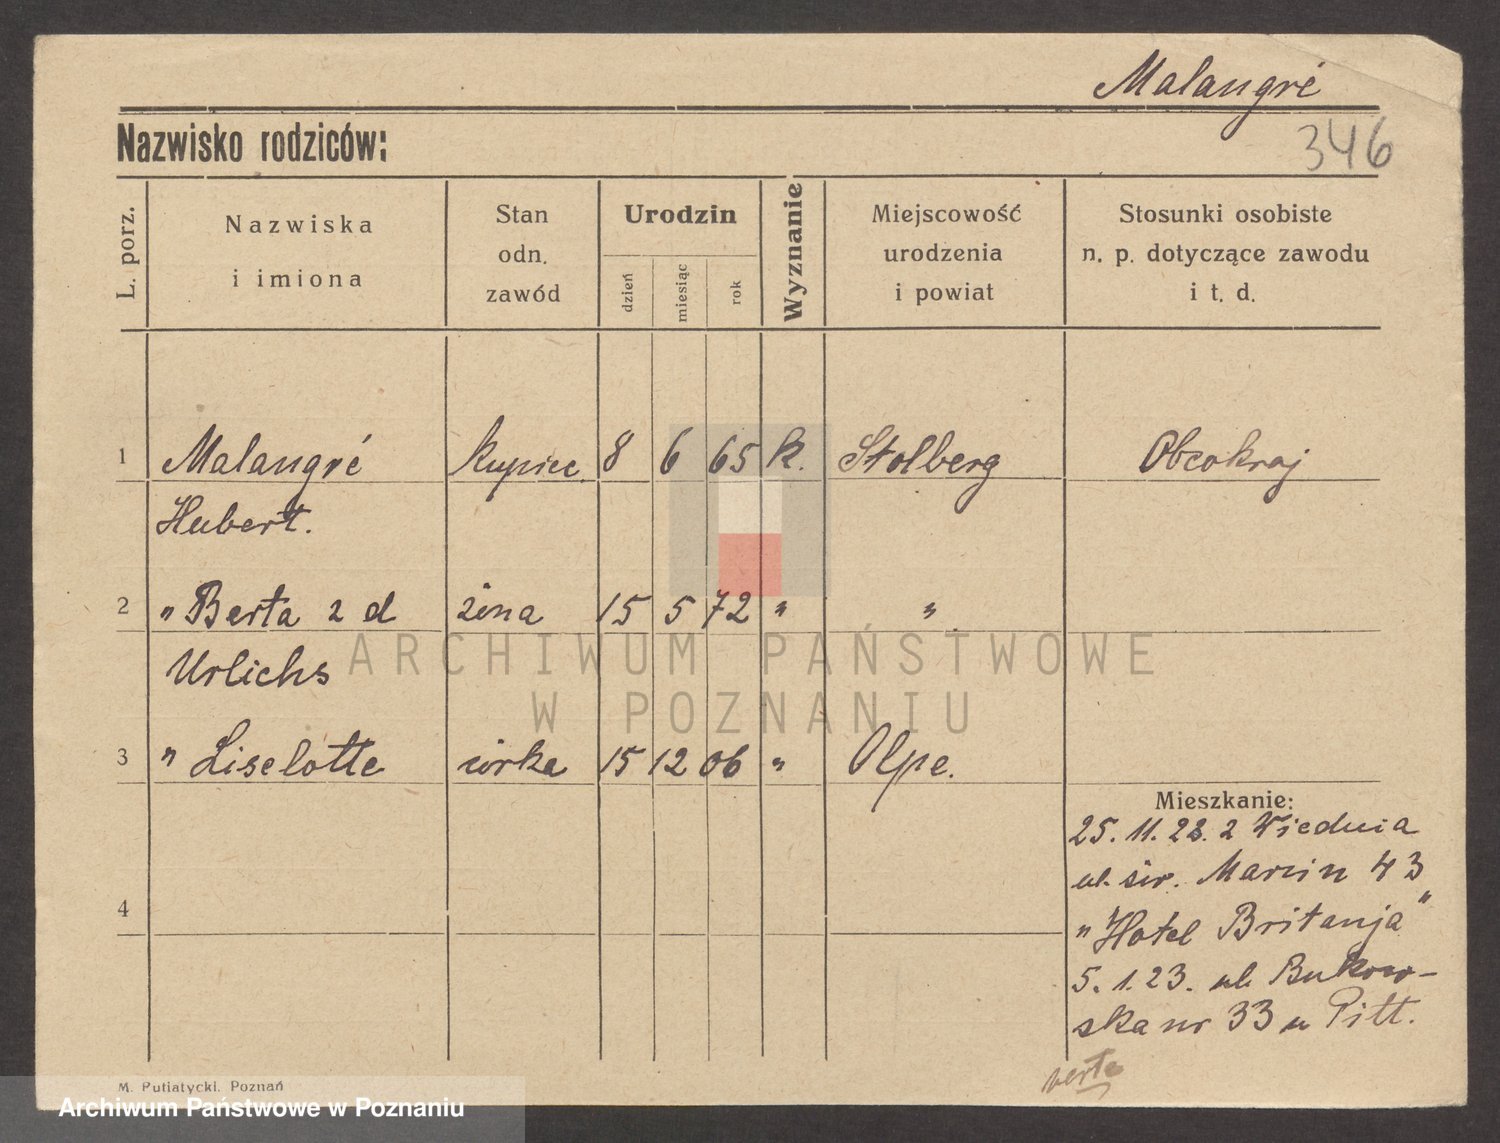 Malangré
Nazwisko rodziców:
346
L. porz.
Nazwiska
i imiona
Stan
odn.
zawód
Urodzin
dzień
miesiąc
rok
Wyznanie
Miejscowość
urodzenia
i powiat
Stosunki osobiste
n. p. dotyczące zawodu
i t. d.
1 Malangré kupiec 8 6 65 k. Stolberg Obcokraj
Hubert.
2 " Berta z d żona 15 5 72 " "
Urlichs
3 " Liselotte córka 15 12 06 " Olpe.
Mieszkanie:
25. 11. 22. z Wiednia
ul. św. Marcin 43
"Hotel Britanja"
4
5. 1. 23. ul. Bukow-
ska nr 33 u Pitt.
verte
M. Putiatycki. Poznań
ARCHIWUM PAŃSTWOWE
W POZNANIU
Archiwum Państwowe w Poznaniu